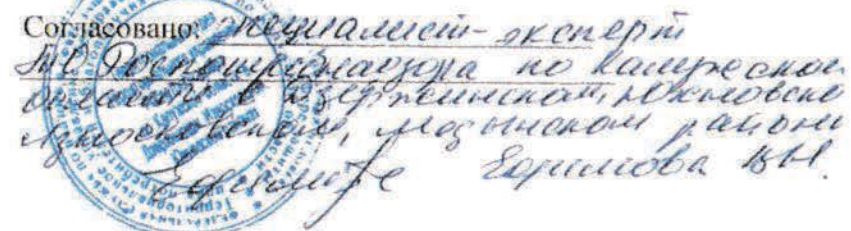 Согласовано: специалист-эксперт
ТО Роспотребнадзора по Калужской
области в Дзержинском, Юхновско
Износковском, Медынском районе
Ефимова В.Н.